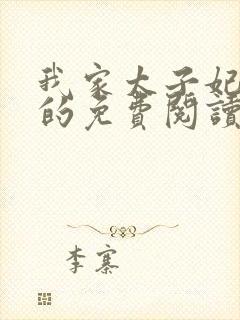 我家太子妃
的免費閱讀
李寨